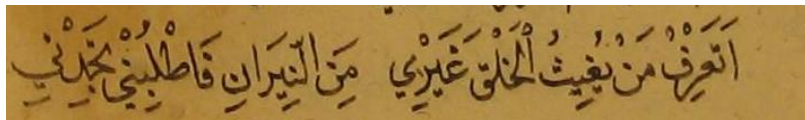 اَتَعْرِفُ مَنْ يُغِيثُ الْخَلْقَ غَيْرِي مِنَ النِّيرَانِ فَاطْلُبْنِي تَجِدْنِي